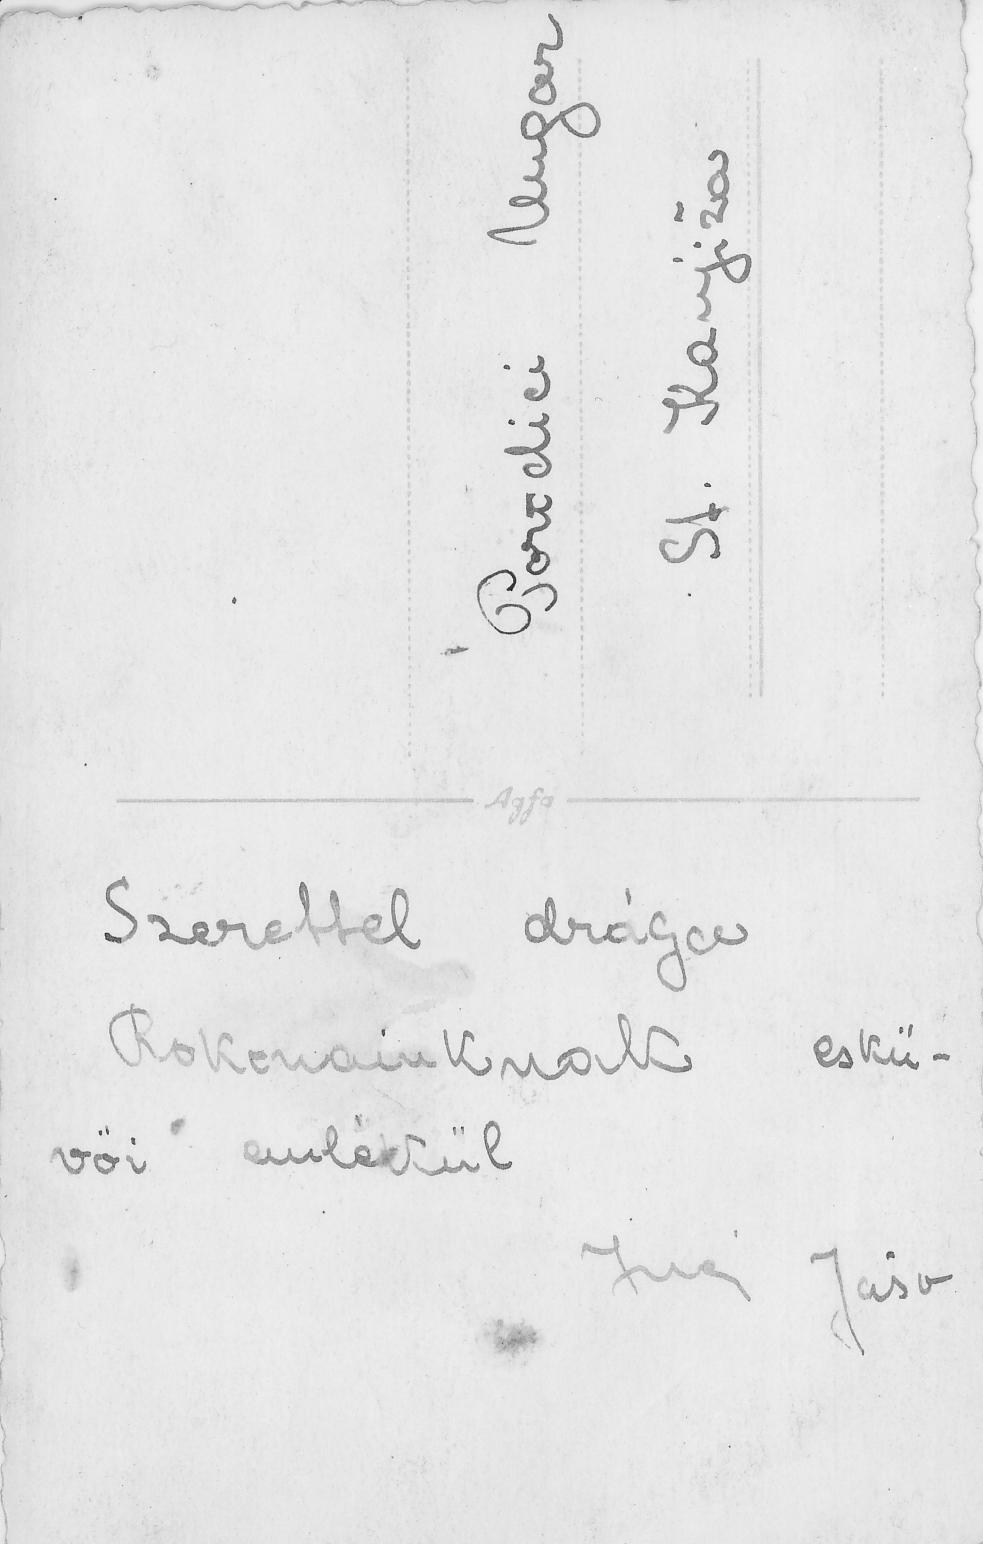 Portdici Ungar
St. Kanjiža
Agfa
Szerettel drága
Rokonainknak eskü-
vöi emlékül
Jaso